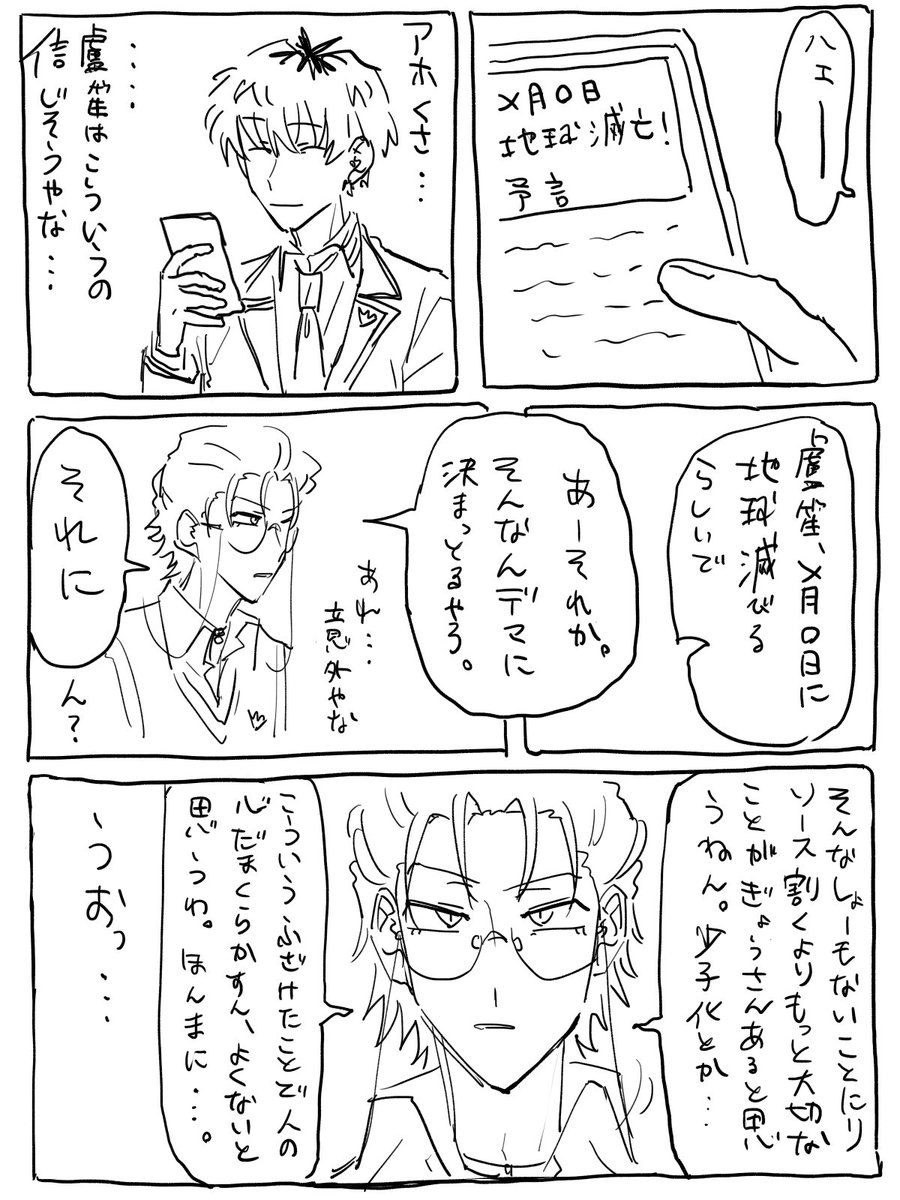 ハエー
〆月〇日
地球滅亡!
予言
アホくさ…
盧笙はこういうの
信じそうやな…
盧笙、〆月〇日に
地球滅びる
らしいで
あーそれか。
そんなんデマに
決まっとるやろ。
あれ…
意外やな
それに
ん?
そんなしょーもないことにリ
ソース割くよりもっと大切な
ことがぎょうさんあると思
うねん。少子化とか…
こういうふざけたことで人の
心だまくらかすん、よくないと
思うわ。ほんまに…。
うおっ…